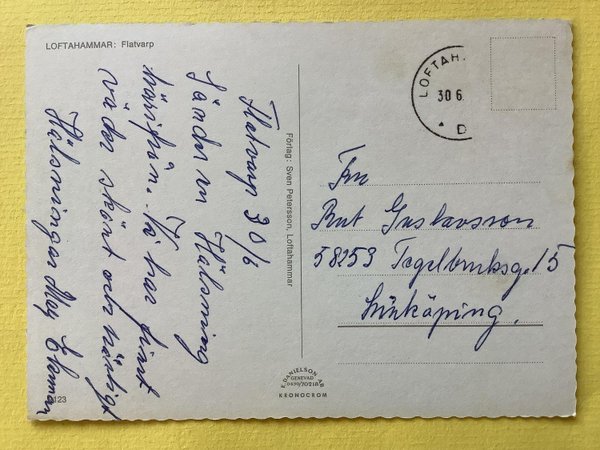 LOFTAHAMMAR: Flatvarp
Flatvarp 30/6
Sänder en Hälsning
härifrån. Vi har fint
väder skönt och härligt
Hälsningar
123
Förlag: Sven Petersson, Loftahammar
LOFTAH
30 6
D
Fru
Rut Gustavsson
58253 Tegelbruksg. 15
Linköping.
E. DANIELSON AB
GENEVAD
0430/70218
KRONOCROM